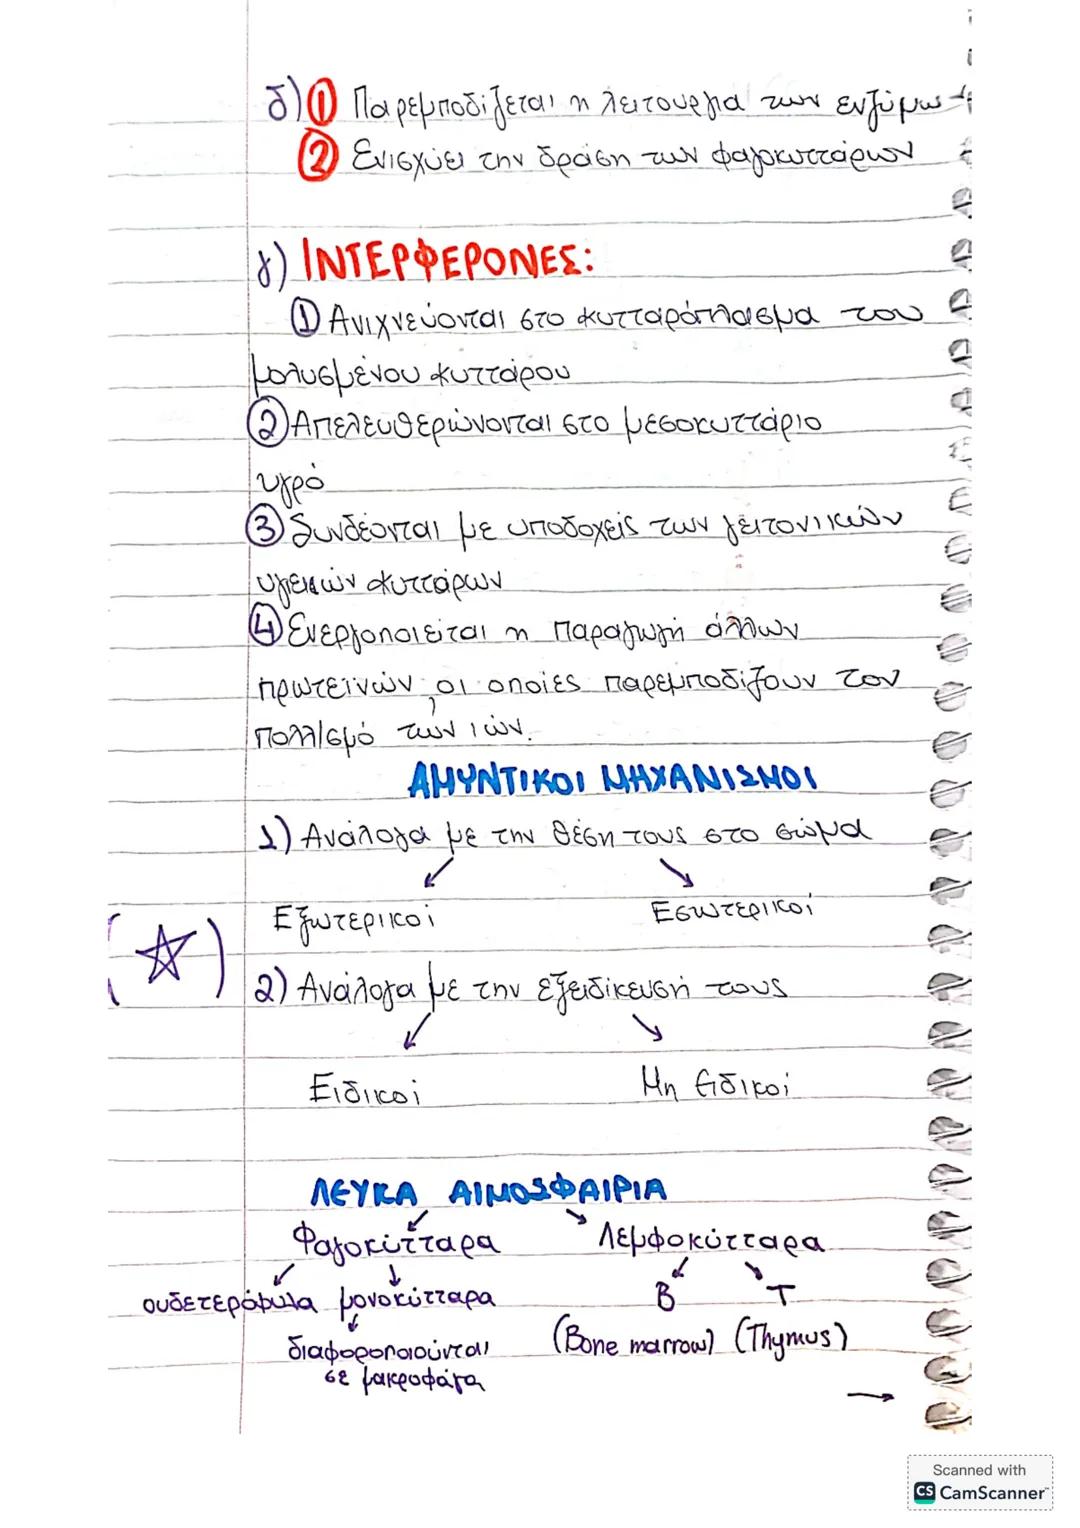 δ) ① Παρεμποδίζεται η λειτουργία των ενζύμων
② Ενισχύει την δράση των φαγοκυττάρων
γ) ΙΝΤΕΡΦΕΡΟΝΕΣ:
① Ανιχνεύονται στο κυτταρόπλασμα του
μολυσμένου κυττάρου
② Απελευθερώνονται στο μεσοκυττάριο
υγρό
③ Συνδέονται με υποδοχείς των γειτονικών
υγειών κυττάρων
④ Ενεργοποιείται η παραγωγή άλλων
πρωτεϊνών, οι οποίες παρεμποδίζουν τον
πολλ/σμό των ιών.
ΑΜΥΝΤΙΚΟΙ ΜΗΧΑΝΙΣΜΟΙ
1) Ανάλογα με την θέση τους στο σώμα
Εξωτερικοί Εσωτερικοί
2) Ανάλογα με την εξειδίκευσή τους
Ειδικοί Μη Ειδικοί
ΛΕΥΚΑ ΑΙΜΟΣΦΑΙΡΙΑ
Φαγοκύτταρα Λεμφοκύτταρα
ουδετερόφιλα μονοκύτταρα Β Τ
διαφοροποιούνται (Bone marrow) (Thymus)
σε μακροφάγα
Scanned with
CS CamScanner